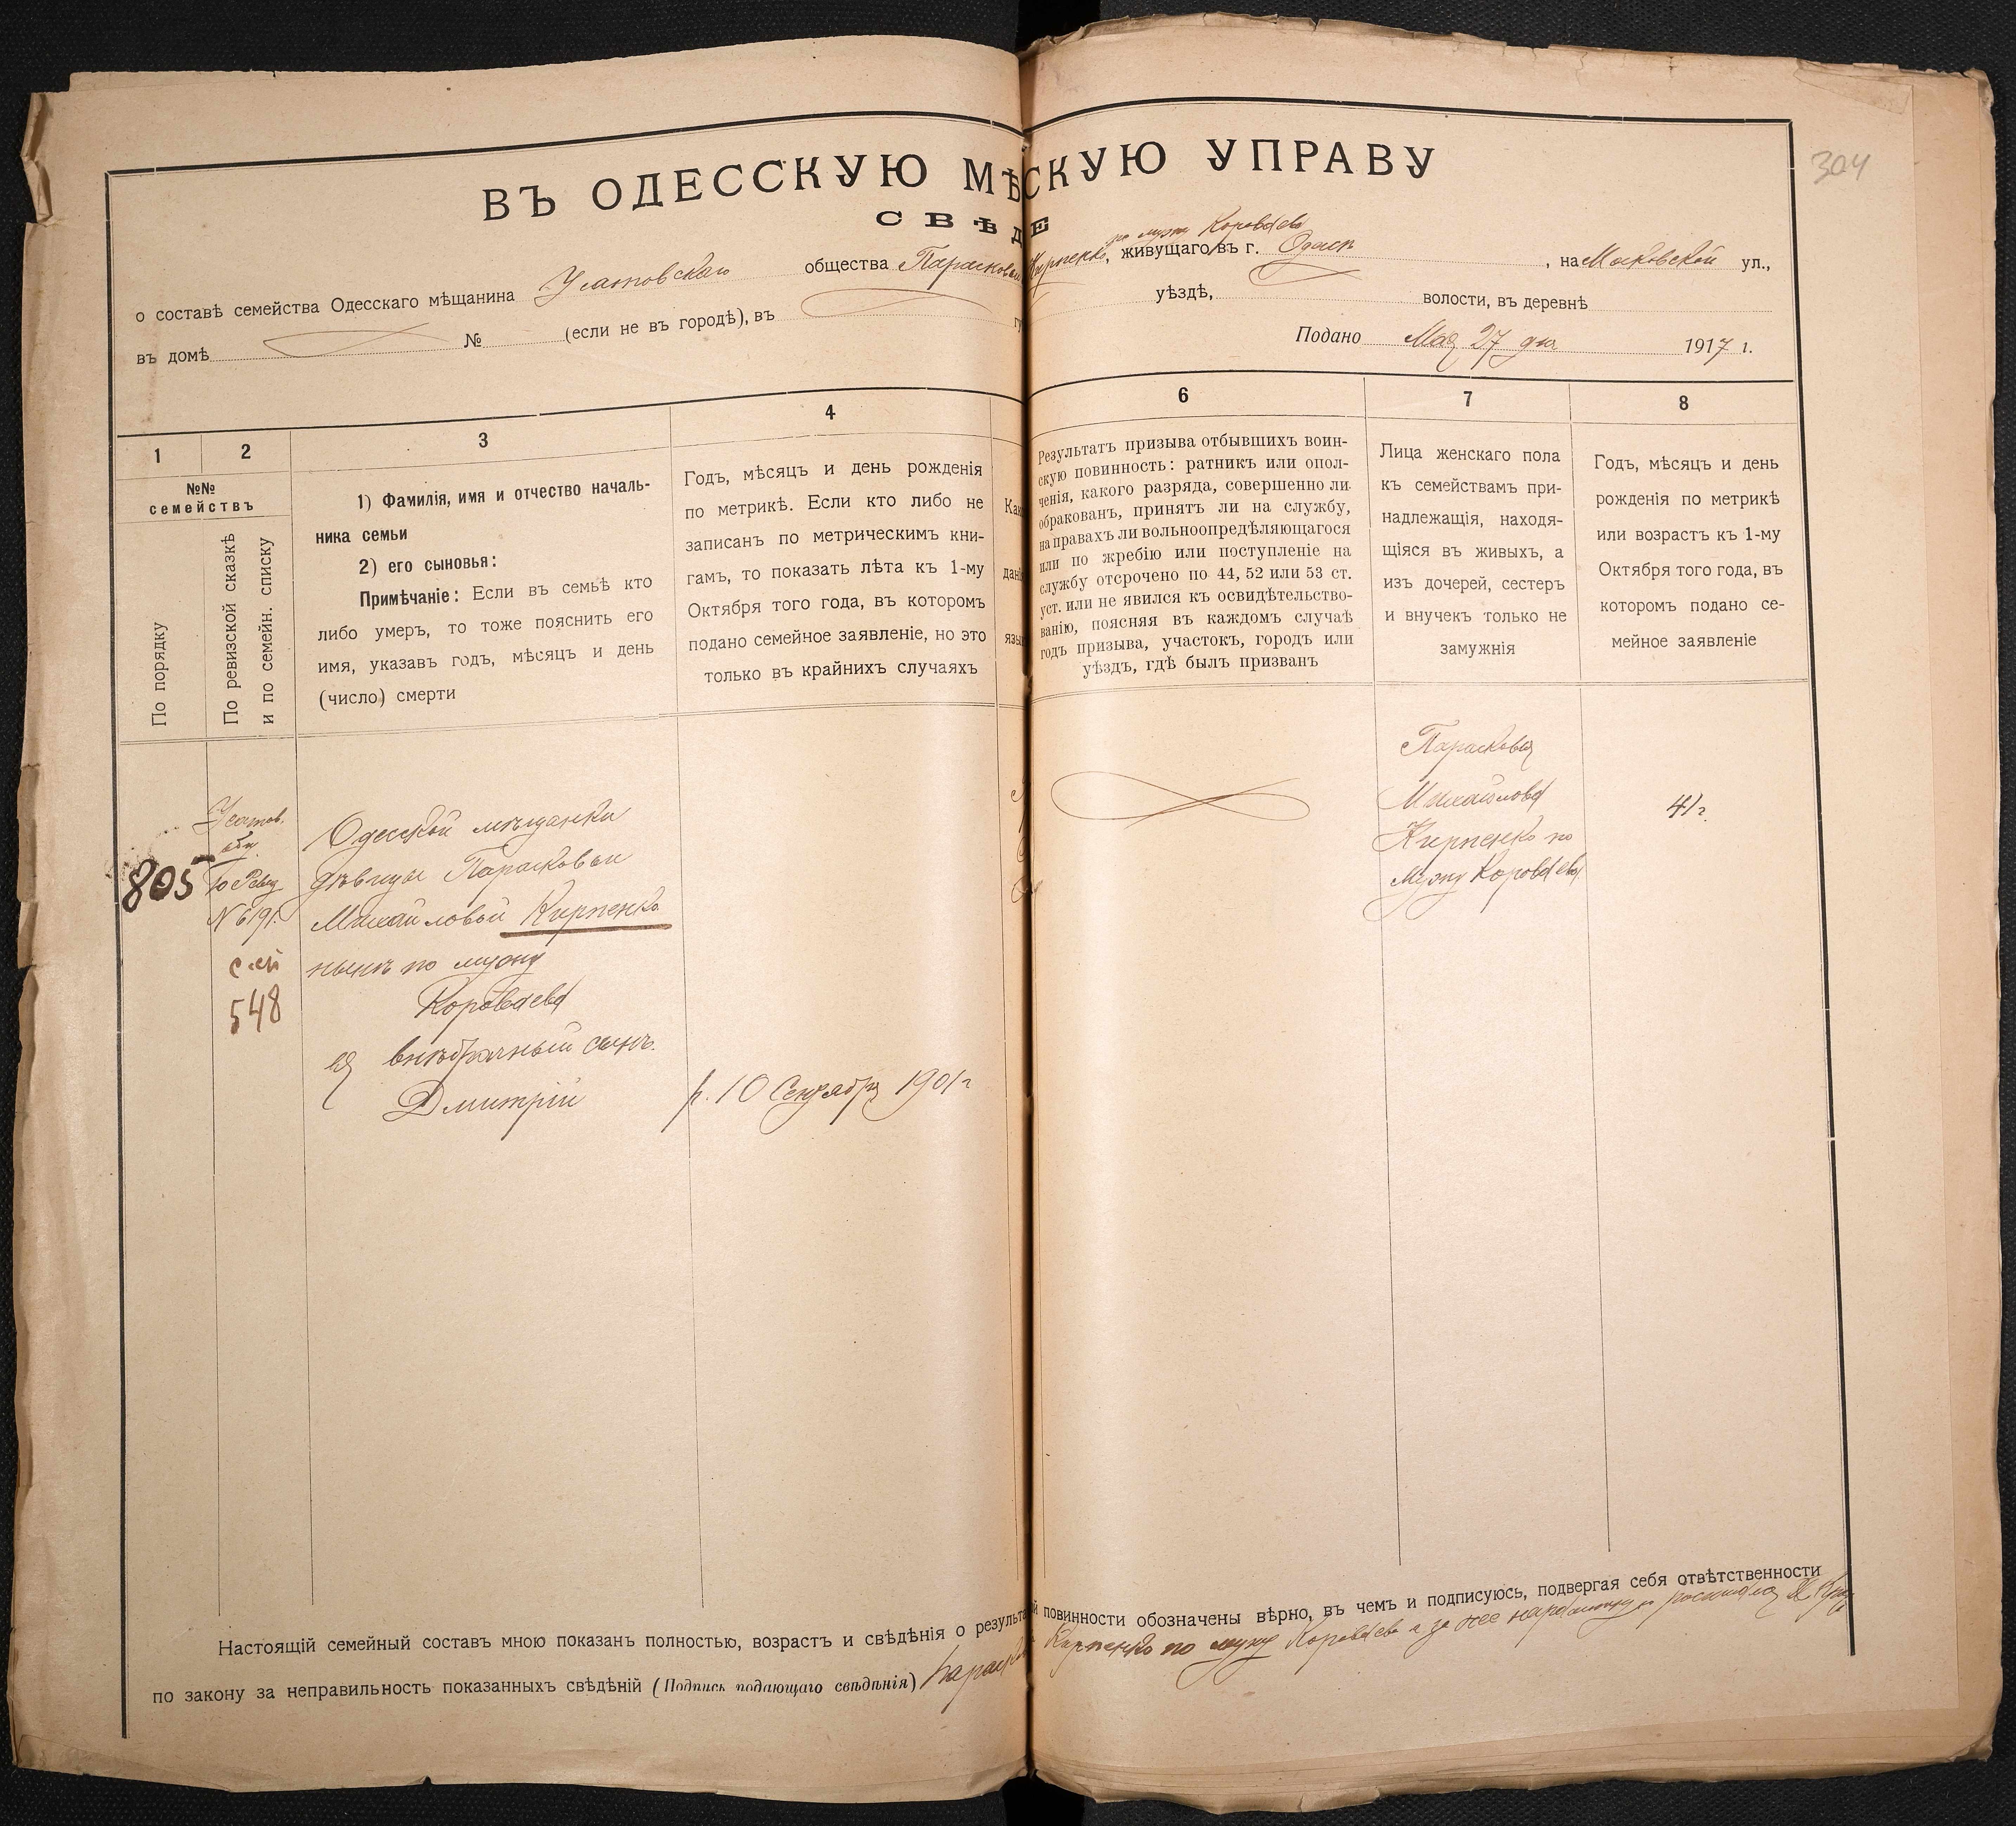 ВЪ ОДЕССКУЮ МѢСКУЮ УПРАВУ
304
СВѢДЕ
по мужу Короваева
о составѣ семейства Одесскаго мѣщанина Усатовскаго общества Парасковеи Кирпенко, живущаго въ г. Одессѣ, на Московской ул.,
въ домѣ № (если не въ городѣ), въ уѣздѣ, волости, въ деревнѣ
Подано Мая 27 дня 1917 г.
1 2 3 4 6 7 8
№№ семействъ
По порядку
По ревизской сказкѣ
и по семейн. списку
1) Фамилія, имя и отчество началь-
ника семьи
2) его сыновья:
Примѣчаніе: Если въ семьѣ кто
либо умеръ, то тоже пояснить его
имя, указавъ годъ, мѣсяцъ и день
(число) смерти
Годъ, мѣсяцъ и день рожденія
по метрикѣ. Если кто либо не
записанъ по метрическимъ кни-
гамъ, то показать лѣта къ 1-му
Октября того года, въ которомъ
подано семейное заявленіе, но это
только въ крайнихъ случаяхъ
Результатъ призыва отбывшихъ воин-
скую повинность: ратникъ или опол-
ченія, какого разряда, совершенно ли
обракованъ, принятъ ли на службу,
на правахъ ли вольноопредѣляющагося
или по жребію или поступленіе на
службу отсрочено по 44, 52 или 53 ст.
уст. или не явился къ освидѣтельство-
ванію, поясняя въ каждомъ случаѣ
годъ призыва, участокъ, городъ или
уѣздъ, гдѣ былъ призванъ
Лица женскаго пола
къ семействамъ при-
надлежащія, находя-
щіяся въ живыхъ, а
изъ дочерей, сестеръ
и внучекъ только не
замужнія
Годъ, мѣсяцъ и день
рожденія по метрикѣ
или возрастъ къ 1-му
Октября того года, въ
которомъ подано се-
мейное заявленіе
805
Усатов.
общ.
По Ревиз
N 619
сем
548
Одесской мѣщанки
дѣвицы Парасковеи
Михайловой Кирпенко
нынѣ по мужу
Короваева
ея внѣбрачный сынъ.
Дмитрій
р. 10 Сентября 1901 г
Парасковья
Михайлова
Кирпенко по
мужу Короваева
41 г.
Настоящій семейный составъ мною показанъ полностью, возрастъ и свѣдѣнія о результа й повинности обозначены вѣрно, въ чемъ и подписуюсь, подвергая себя отвѣтственности
по закону за неправильность показанныхъ свѣдѣній (Подпись подающаго свѣдѣнія) Параско Кирпенко по мужу Короваева а за нее неграмотную росписался